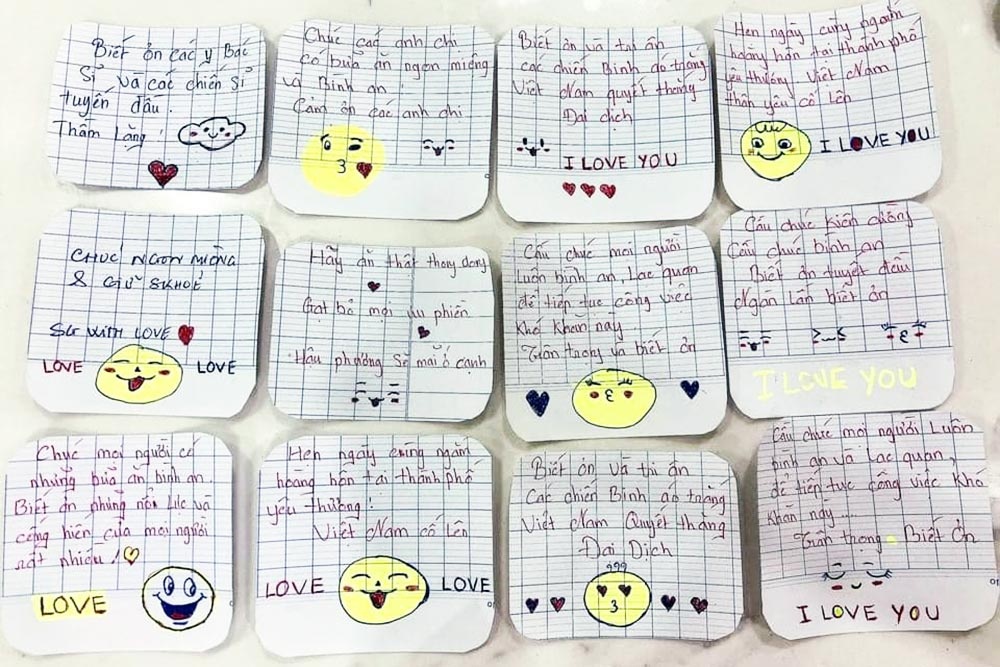 Biết ơn các y Bác
Sĩ và các chiến sĩ
tuyến đầu.
Thầm lặng!
Chúc các anh chị
có bữa ăn ngon miệng
và Bình an!
Cảm ơn các anh chị
Biết ơn và tri ân
các chiến Binh áo trắng
Việt Nam quyết thắng
Đại dịch
I LOVE YOU
Hẹn ngày cùng ngắm
hoàng hôn tại thành phố
yêu thương Việt Nam
thân yêu cố lên
I LOVE YOU
CHÚC NGON MIỆNG
& GIỮ SKHOẺ
SG WITH LOVE
LOVE LOVE
Hãy ăn thật thong dong
Gạt bỏ mọi ưu phiền
Hậu phương Sẽ mãi ở cạnh
Cầu chúc mọi người
Luôn bình an Lạc quan
để tiếp tục công việc
khó khăn này...
Trân trọng và biết ơn
Cầu chúc kiên cường
Cầu chúc bình an
Biết ơn tuyết đầu
Ngàn lần biết ơn
I LOVE YOU
Chúc mọi người có
những bữa ăn bình an.
Biết ơn những nỗ lực và
cống hiến của mọi người
rất nhiều!
LOVE
Hẹn ngày cùng ngắm
hoàng hôn tại thành phố
yêu thương!
Việt Nam cố lên
LOVE LOVE
Biết ơn và tri ân
Các chiến Binh áo trắng
Việt Nam Quyết thắng
Đại Dịch
Cầu chúc mọi người Luôn
bình an và Lạc quan,
để tiếp tục công việc khó
khăn này...
Trân trọng - Biết Ơn
I LOVE YOU